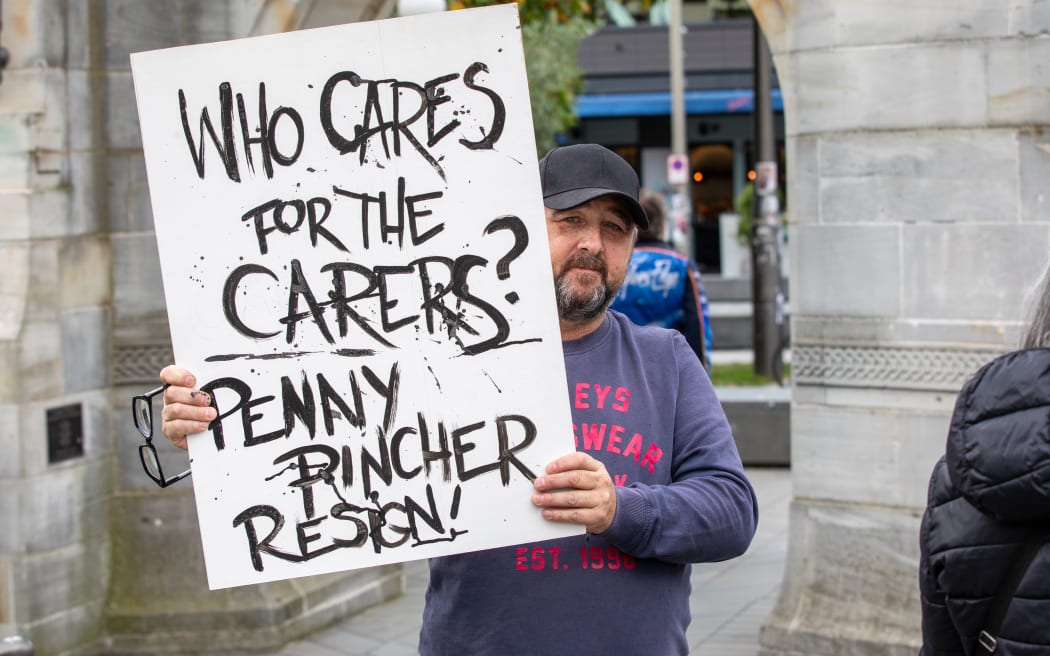 WHO CARES
FOR THE
CARERS?
PENNY
PINCHER
RESIGN!
EYS
SWEAR
EST. 1996